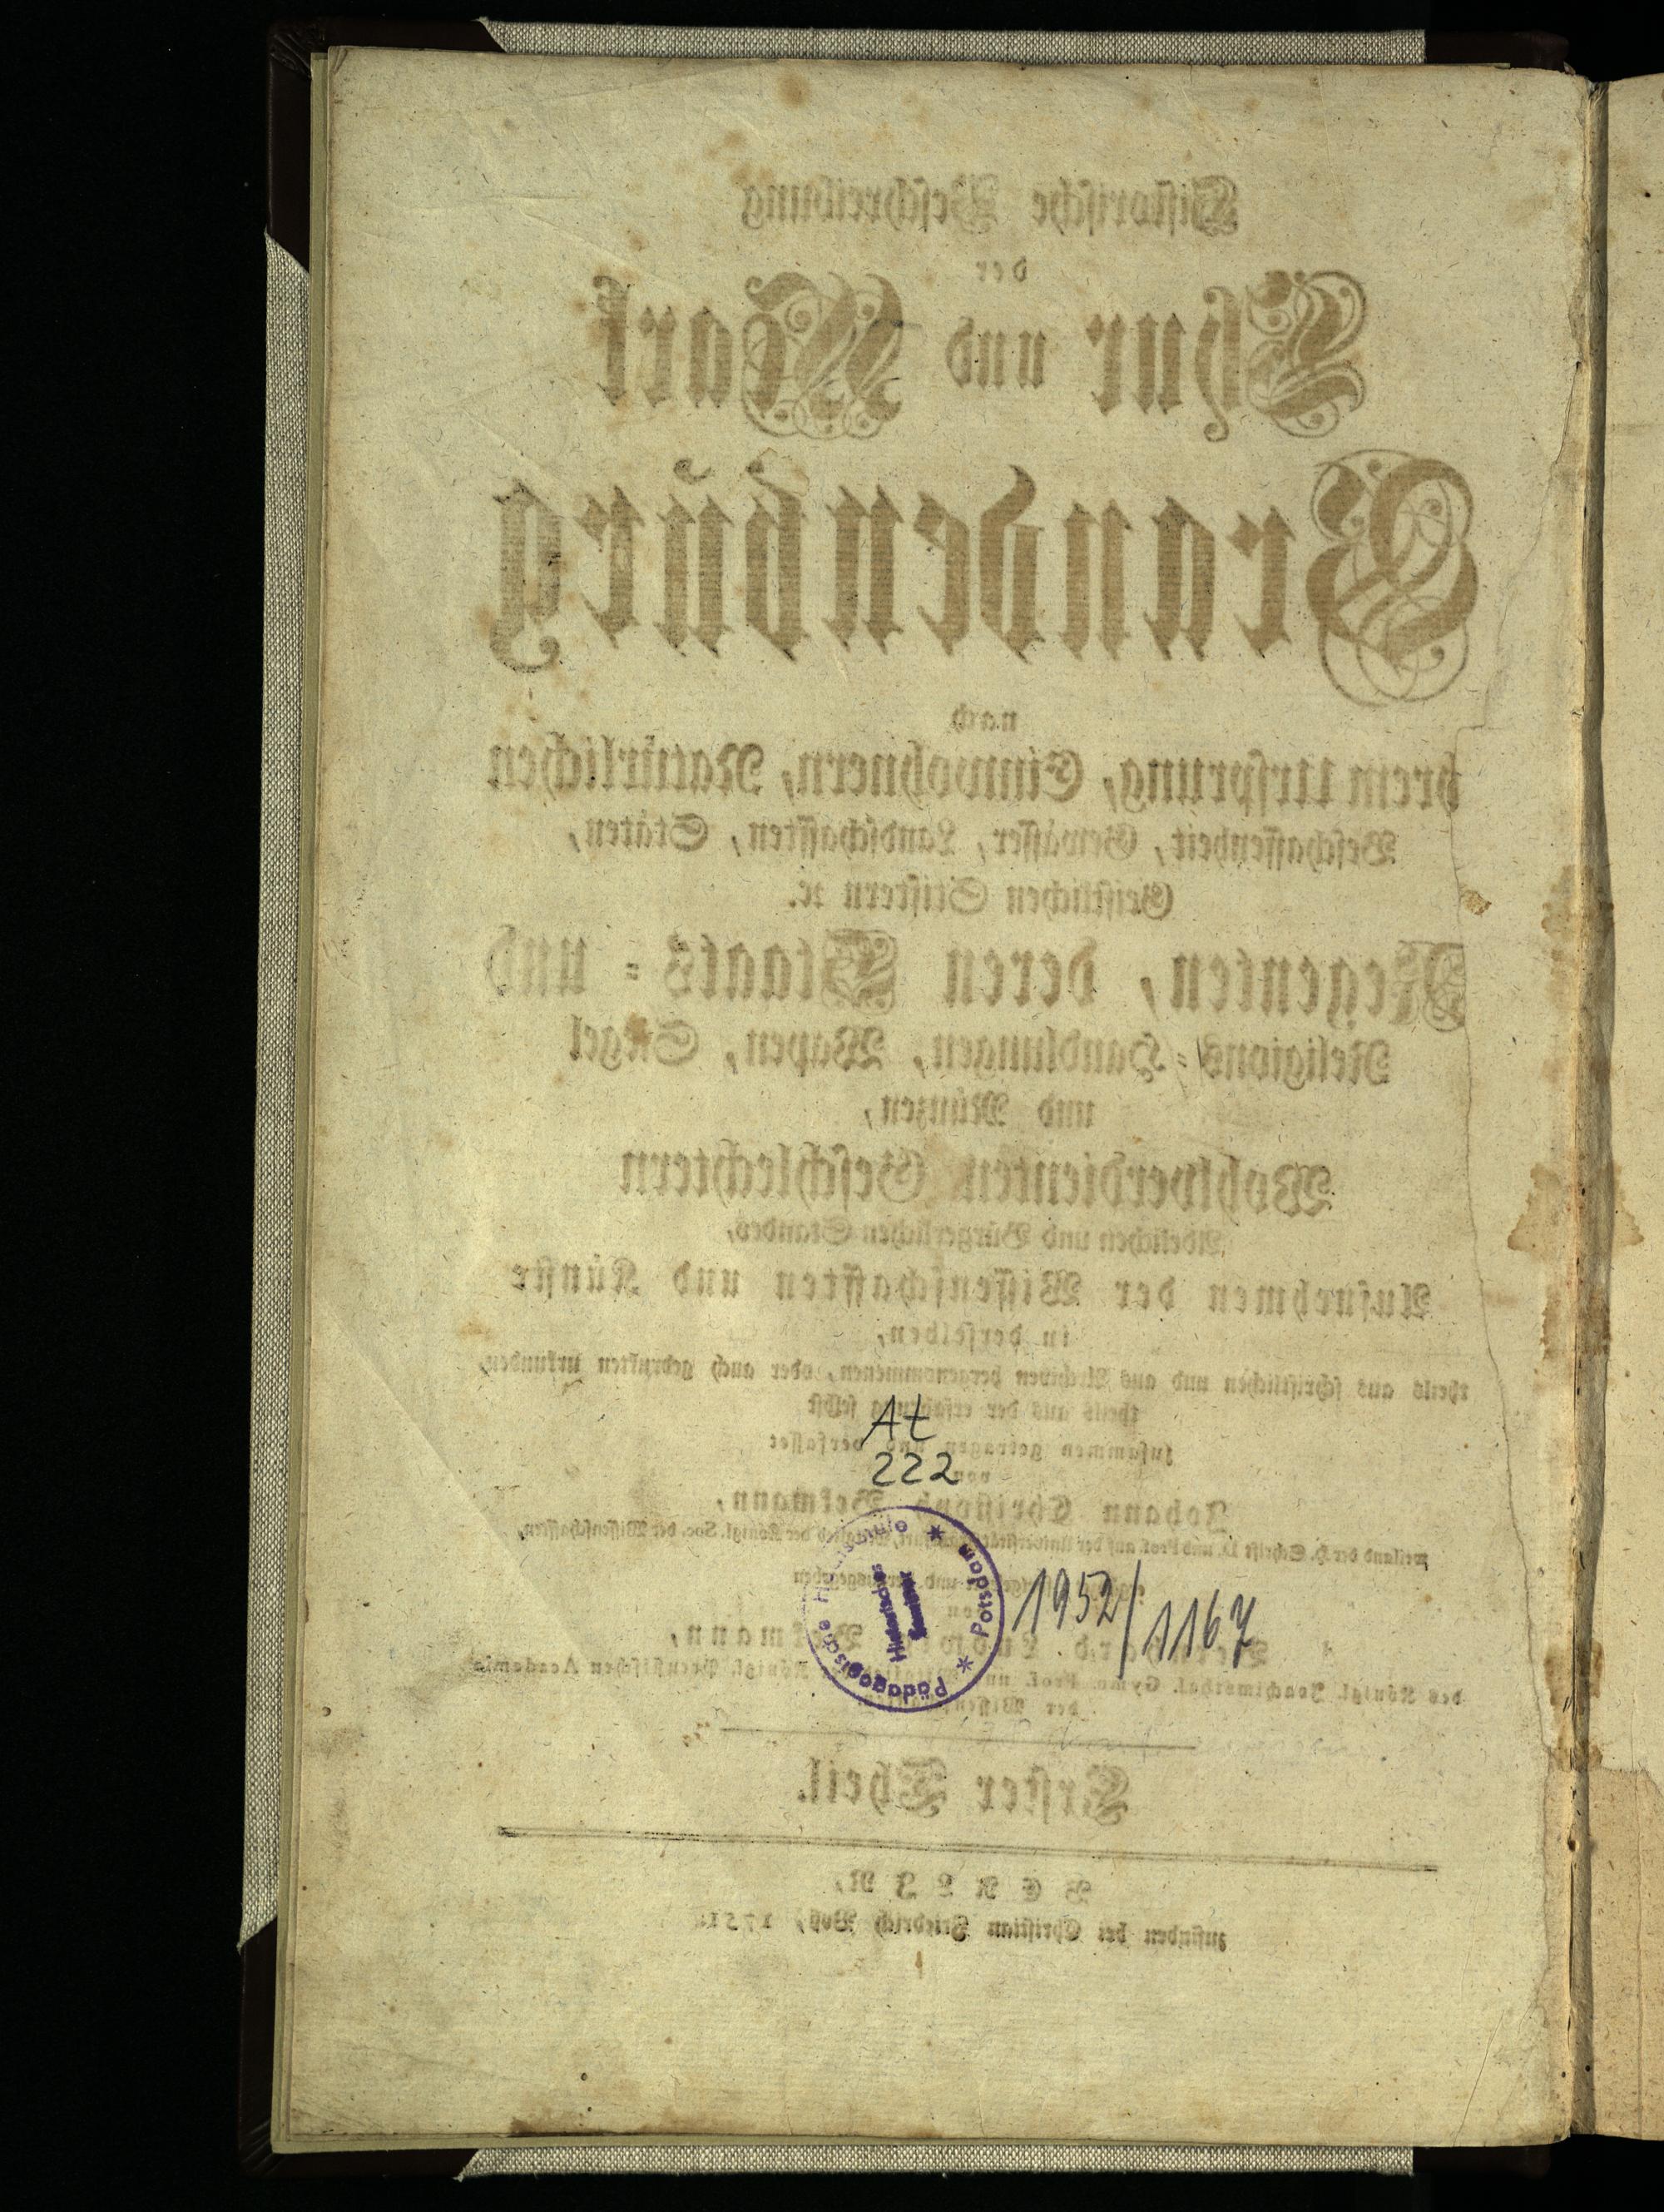 Historische Beschreibung
der
Chur und Mark
Brandenburg
nach
ihrem Ursprung, Einwohnern, Natürlichen
Beschaffenheit, Gewässer, Landschafften, Stäten,
Geistlichen Stiftern ꝛc.
Regenten, deren Staats- und
Religions-Handlungen, Wapen, Siegel
und Münzen,
Wohlverdienten Geschlechtern
Adelichen und Bürgerlichen Standes,
Aufnehmen der Wissenschafften und Künste
in derselben,
theils aus schriftlichen und aus Archiven hergenommenen, oder auch gedrukten urkunden,
theils aus der erfahrung selbst
zusammen getragen und verfasset
von
Johann Christoph Bekmann,
weiland der H. Schrift D. und Prof. auf der Universität Mitglied der Königl. Soc. der Wissenschafften,
und
Ludw Bekmann,
des Königl. Joachimsthal. Gymn. Prof. Königl. Preussischen Academie
der Wissenschafften
At
222
Pädagogische Hochschule * Potsdam *
Historisches
Seminar
1952/1167
Erster Theil.
BERLIN,
zufinden bei Christian Friedrich Voß, 1751.